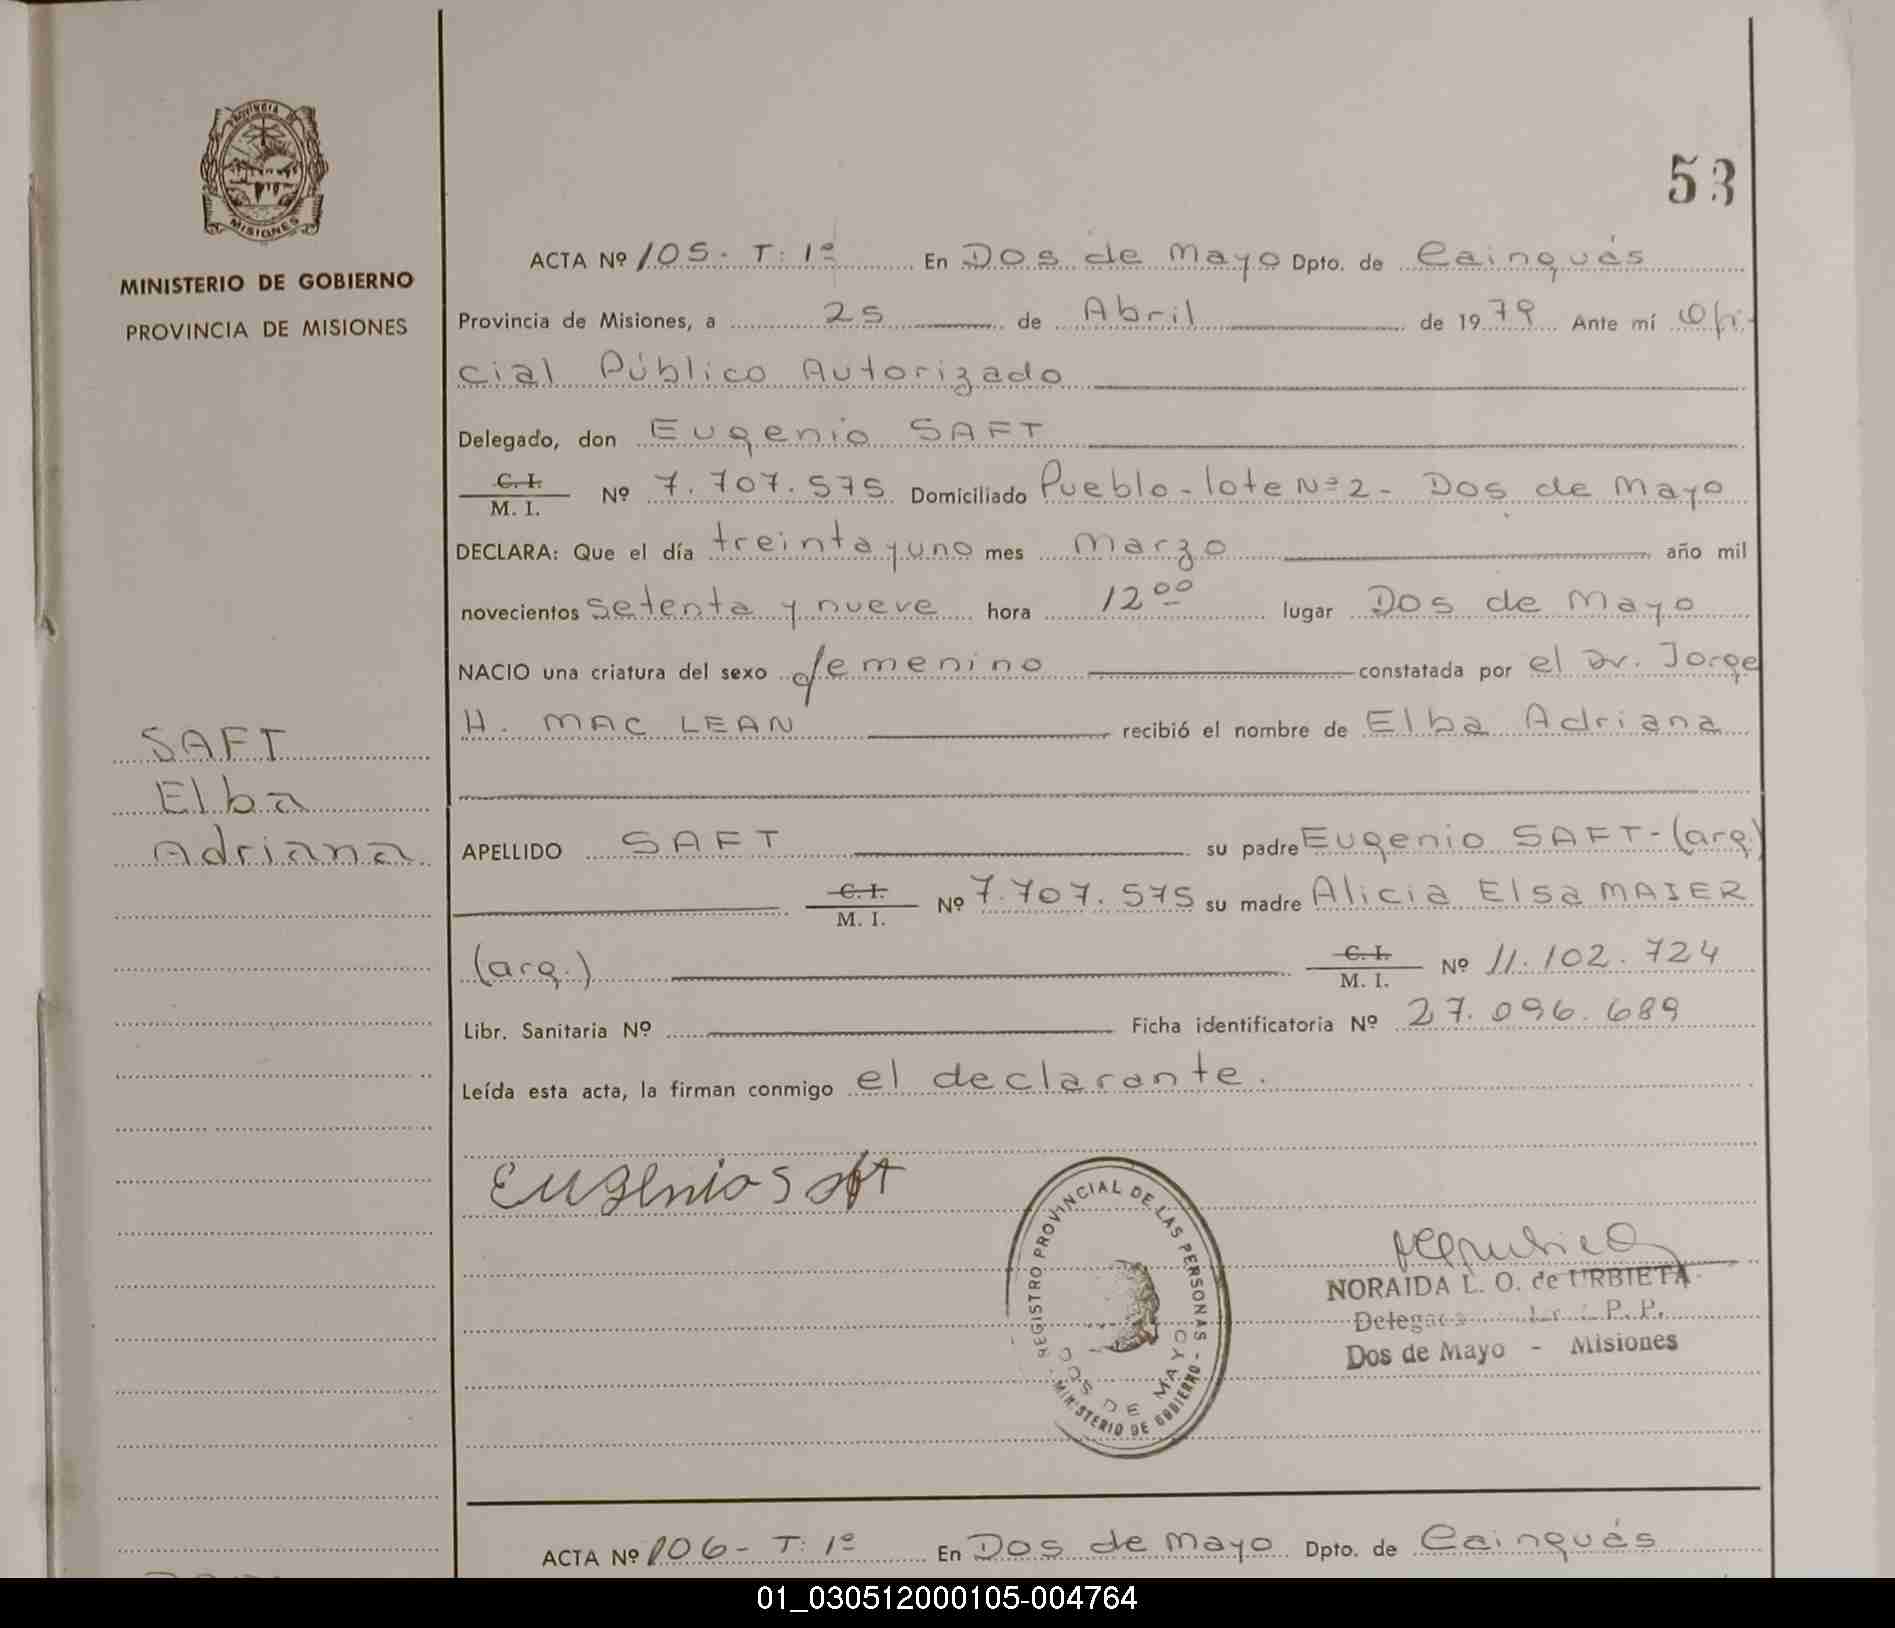 PROVINCIA DE
MISIONES
MINISTERIO DE GOBIERNO
PROVINCIA DE MISIONES
SAFT
Elba
Adriana
53
ACTA Nº 105 - T: 1º En Dos de Mayo Dpto. de Cainguás
Provincia de Misiones, a 25 de Abril de 1979 Ante mí Ofi-
cial Público Autorizado
Delegado, don Eugenio SAFT
C. I.
M. I. Nº 7.707.575 Domiciliado Pueblo - lote Nº 2 - Dos de Mayo
DECLARA: Que el día treinta y uno mes Marzo año mil
novecientos setenta y nueve hora 12 00 lugar Dos de Mayo
NACIO una criatura del sexo femenino constatada por el Dr. Jorge
H. MAC LEAN recibió el nombre de Elba Adriana
APELLIDO SAFT su padre Eugenio SAFT - (arg.)
C. I.
M. I. Nº 7.707.575 su madre Alicia Elsa MAIER
(arg.) C. I.
M. I. Nº 11.102.724
Libr. Sanitaria Nº Ficha identificatoria Nº 27.096.689
Leída esta acta, la firman conmigo el declarante.
Eugenio Saft
REGISTRO PROVINCIAL DE LAS PERSONAS -
DOS DE MAYO
MINISTERIO DE GOBIERNO -
NORAIDA L. O. de URBIETA
P. P.
Dos de Mayo - Misiones
ACTA Nº 106 - T: 1º En Dos de Mayo Dpto. de Cainguás
01_030512000105-004764